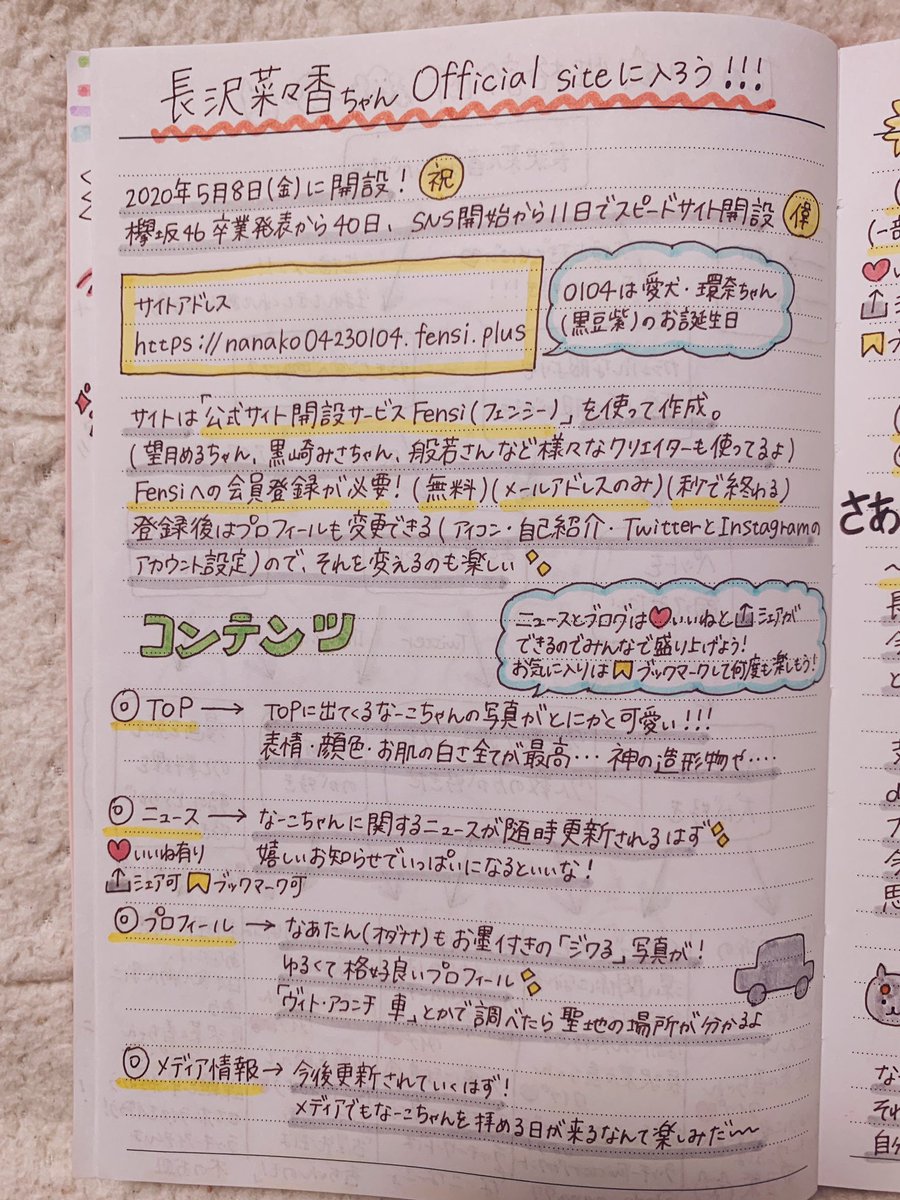 長沢菜々香ちゃん Official siteに入ろう!!!
2020年5月8日(金)に開設! 祝
欅坂46卒業発表から40日、SNS開始から11日でスピードサイト開設 偉
サイトアドレス
https://nanako04230104.fensi.plus
0104は愛犬・環奈ちゃん
(黒豆紫)のお誕生日
サイトは「公式サイト開設サービスFensi(フェンシー)」を使って作成。
(望月めるちゃん、黒崎みさちゃん、般若さんなど様々なクリエイターも使ってるよ)
Fensiへの会員登録が必要!(無料)(メールアドレスのみ)(秒で終わる)
登録後はプロフィールも変更できる(アイコン・自己紹介・TwitterとInstagramの
アカウント設定)ので、それを変えるのも楽しい
コンテンツ
ニュースとブログはいいねとシェアが
できるのでみんなで盛り上げよう!
お気に入りはブックマークして何度も楽しもう!
◎TOP→ TOPに出てくるなーこちゃんの写真がとにかく可愛い!!!
表情・顔色・お肌の白さ全てが最高…神の造形物や‥‥
◎ニュース→ なーこちゃんに関するニュースが随時更新されるはず
いいね有り 嬉しいお知らせでいっぱいになるといいな!
シェア可 ブックマーク可
◎プロフィール→ なあたん(オダナナ)もお墨付きの「ジワる」写真が!
ゆるくて格好良いプロフィール
「ヴィト・アコンチ 車」とかで調べたら聖地の場所が分かるよ
◎メディア情報→ 今後更新されていくはず!
メディアでもなーこちゃんを拝める日が来るなんて楽しみだ〜
(一部
さあ